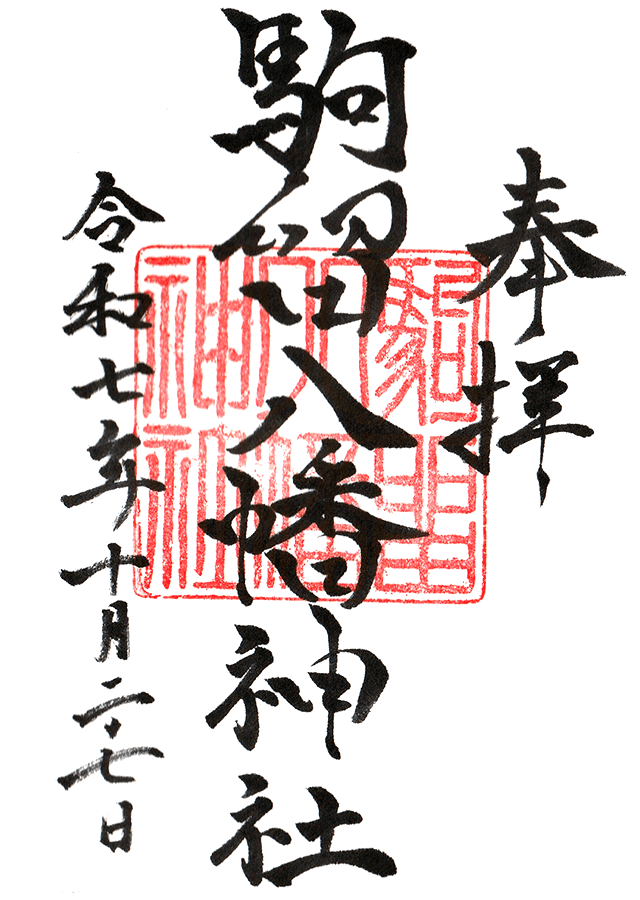 奉拝
駒留八幡神社
令和七年十月二十七日
駒留八幡神社